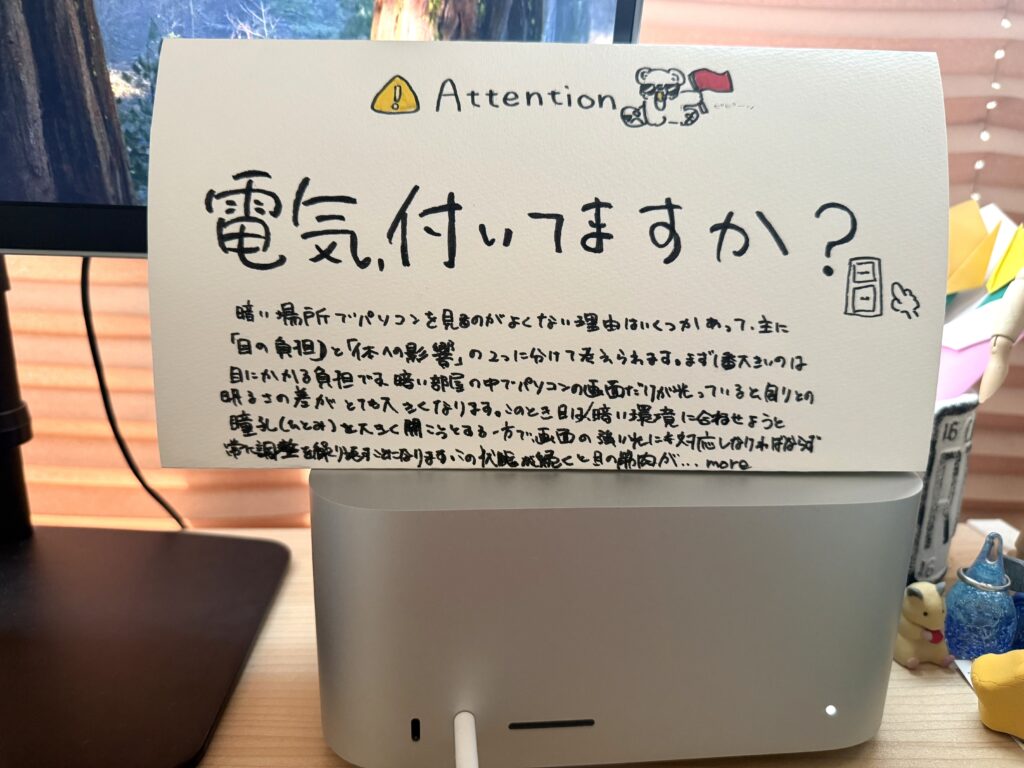 Attention
ピピーッ
電気、付いてますか?
暗い場所でパソコンを見るのがよくない理由はいくつかあって、主に
「目の負担」と「体への影響」の2つに分けて考えられます。まず1番大きいのは
目にかかる負担です。暗い部屋の中でパソコンの画面だけが光っていると、周りとの
明るさの差がとても大きくなります。このとき目は、暗い環境に合わせようと
瞳孔(ひとみ)を大きく開こうとする一方で画面の強い光にも対応しなければならず
常に調整を繰り返すことになります。この状態が続くと目の筋肉が... more
16
16